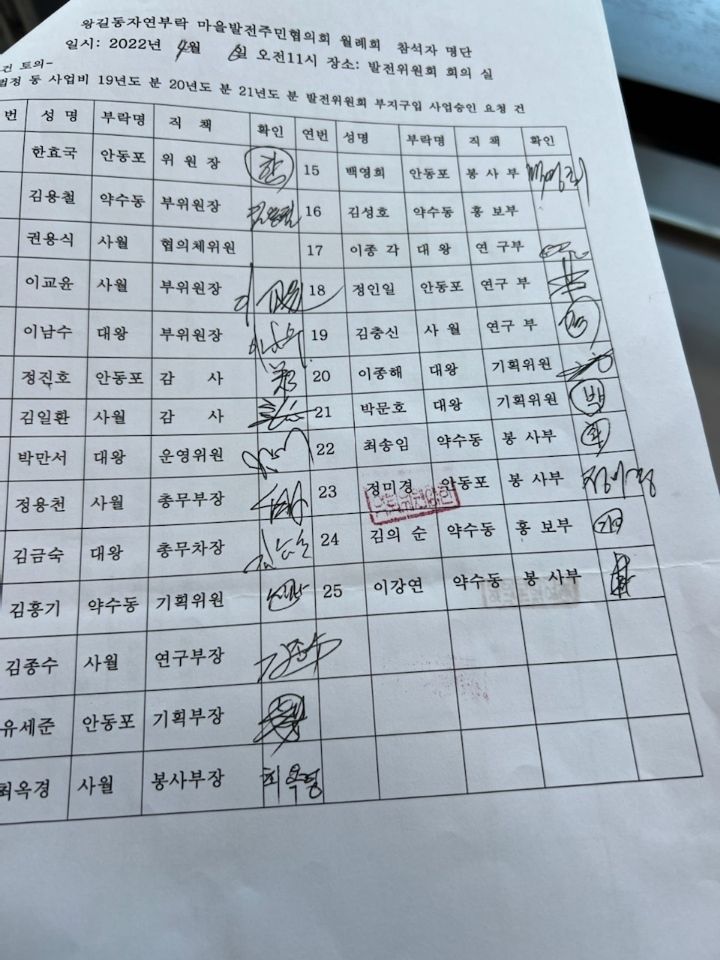 왕길동자연부락 마을발전주민협의회 월례회 참석자 명단
일시: 2022년 4월 6일 오전11시 장소: 발전위원회 회의 실
건 토의-
법정 동 사업비 19년도 분 20년도 분 21년도 분 발전위원회 부지구입 사업승인 요청 건
번 성 명 부락명 직 책 확인 연번 성명 부락명 직 책 확인
한효국 안동포 위 원 장 한 15 백영희 안동포 봉 사 부
김용철 약수동 부위원장 16 김성호 약수동 홍 보부
권용식 사월 협의체위원 17 이종 각 대 왕 연 구부
이교윤 사월 부위원장 18 정인일 안동포 연구 부
이남수 대왕 부위원장 19 김충신 사 월 연구 부
정진호 안동포 감 사 20 이종해 대왕 기획위원
김일환 사월 감 사 21 박문호 대왕 기획위원 박
박만서 대왕 운영위원 22 최송임 약수동 봉 사부 최
정용천 사월 총무부장 23 정미경 안동포 봉 사부
김금숙 대왕 총무차장 24 김의 순 약수동 홍 보부
김홍기 약수동 기획위원 25 이강연 약수동 봉 사부
김종수 사월 연구부장
유세준 안동포 기획부장
최옥경 사월 봉사부장